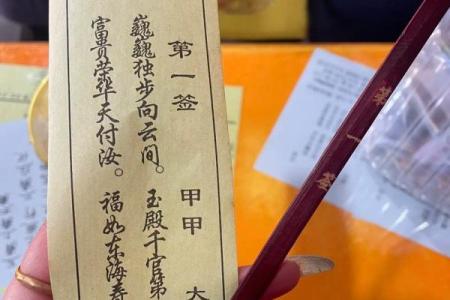 第一签 甲甲 大
巍巍独步向云间。 玉殿千官第
富贵荣华天付汝。 福如东海寿
第一签